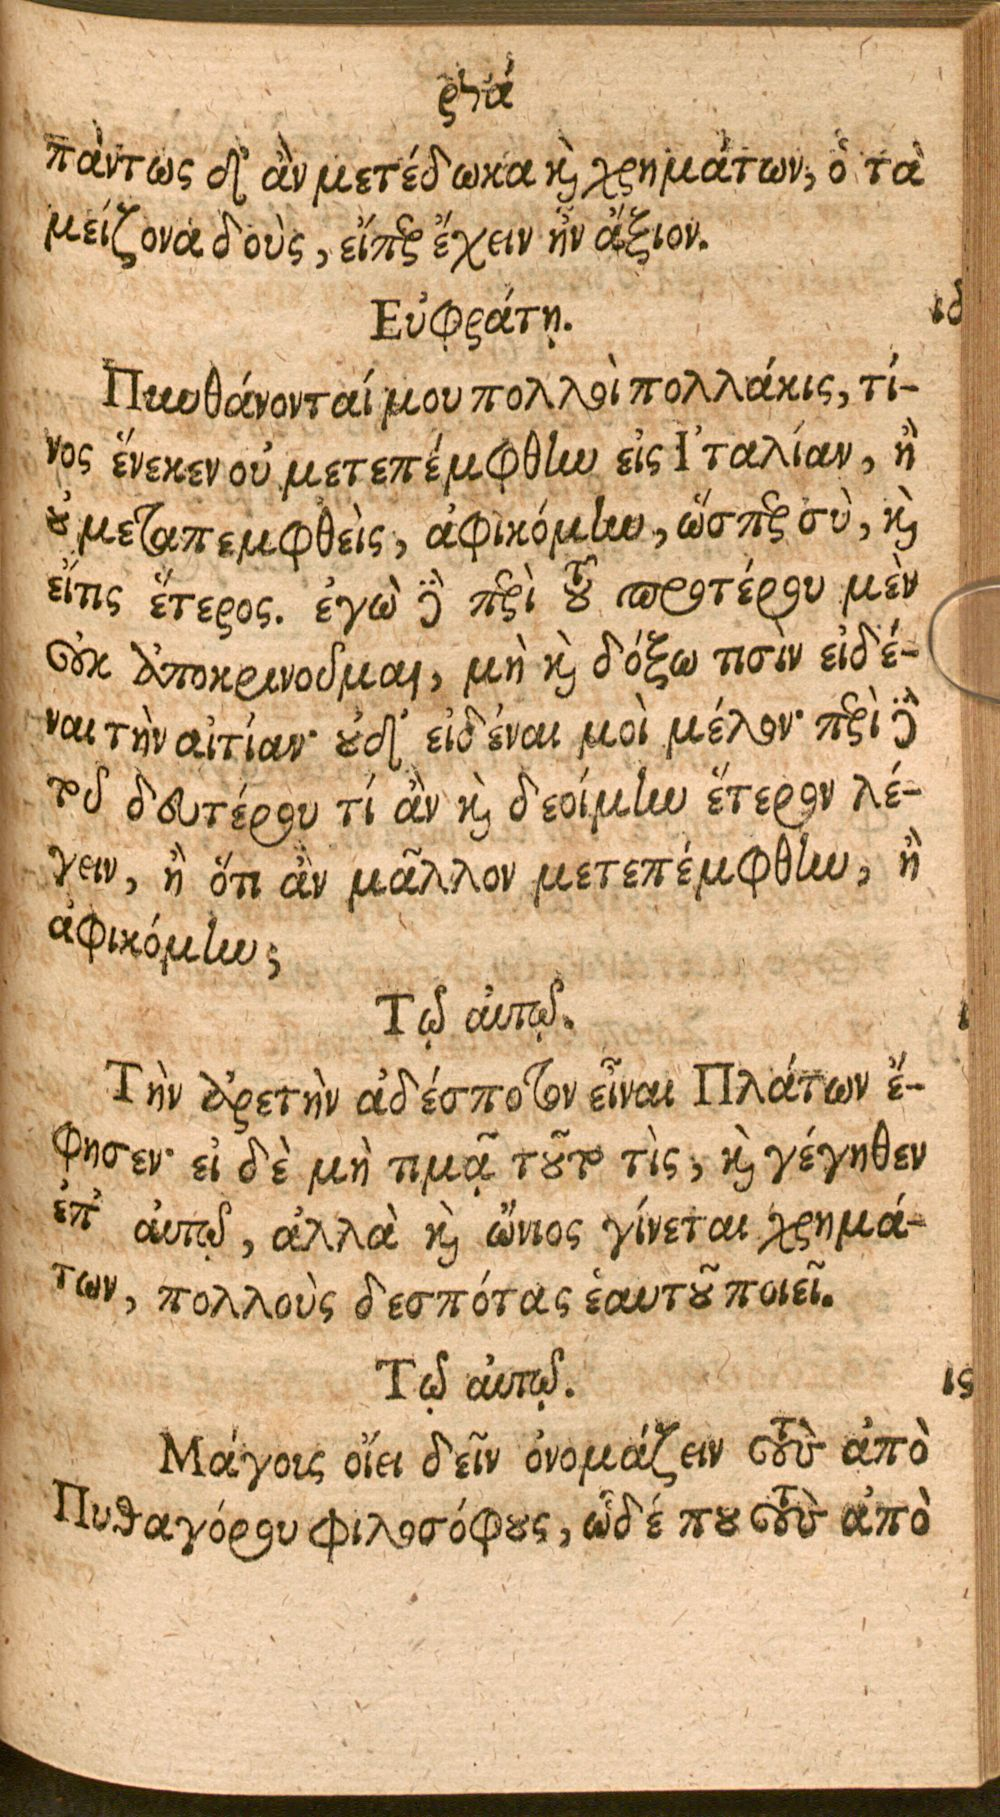 ρϟά
πάντως δ' ἂν μετέδωκα καὶ χρημάτων, ὁ τὰ
μείζονα δοὺς, εἴπερ ἔχειν ἦν ἄξιον.
Εὐφράτῃ. ιδ
Πυνθάνονταί μου πολλοὶ πολλάκις, τί-
νος ἕνεκεν οὐ μετεπέμφθην εἰς Ἰταλίαν, ἢ
οὐ μεταπεμφθεὶς, ἀφικόμην, ὥσπερ σὺ, καὶ
εἴτις ἕτερος. ἐγὼ δὲ περὶ τοῦ προτέρου μὲν
οὐκ ἀποκρινοῦμαι, μὴ καὶ δόξω τισὶν εἰδέ-
ναι τὴν αἰτίαν· οὐδ' εἰδέναι μοὶ μέλον· περὶ δὲ
τοῦ δευτέρου τί ἂν καὶ δεοίμην ἕτερον λέ-
γειν, ἢ ὅτι ἂν μᾶλλον μετεπέμφθην, ἢ
ἀφικόμην;
Τῷ αὐτῷ.
Τὴν ἀρετὴν ἀδέσποτον εἶναι Πλάτων ἔ-
φησεν· εἰ δὲ μὴ τιμᾷ τοῦτο τὶς, καὶ γέγηθεν
ἐπ' αὐτῷ, ἀλλὰ καὶ ὤνιος γίνεται χρημά-
των, πολλοὺς δεσπότας ἑαυτοῦ ποιεῖ.
Τῷ αὐτῷ. ις
Μάγοις οἴει δεῖν ὀνομάζειν τοὺς ἀπὸ
Πυθαγόρου φιλοσόφους, ὧδέ που τοὺς ἀπὸ